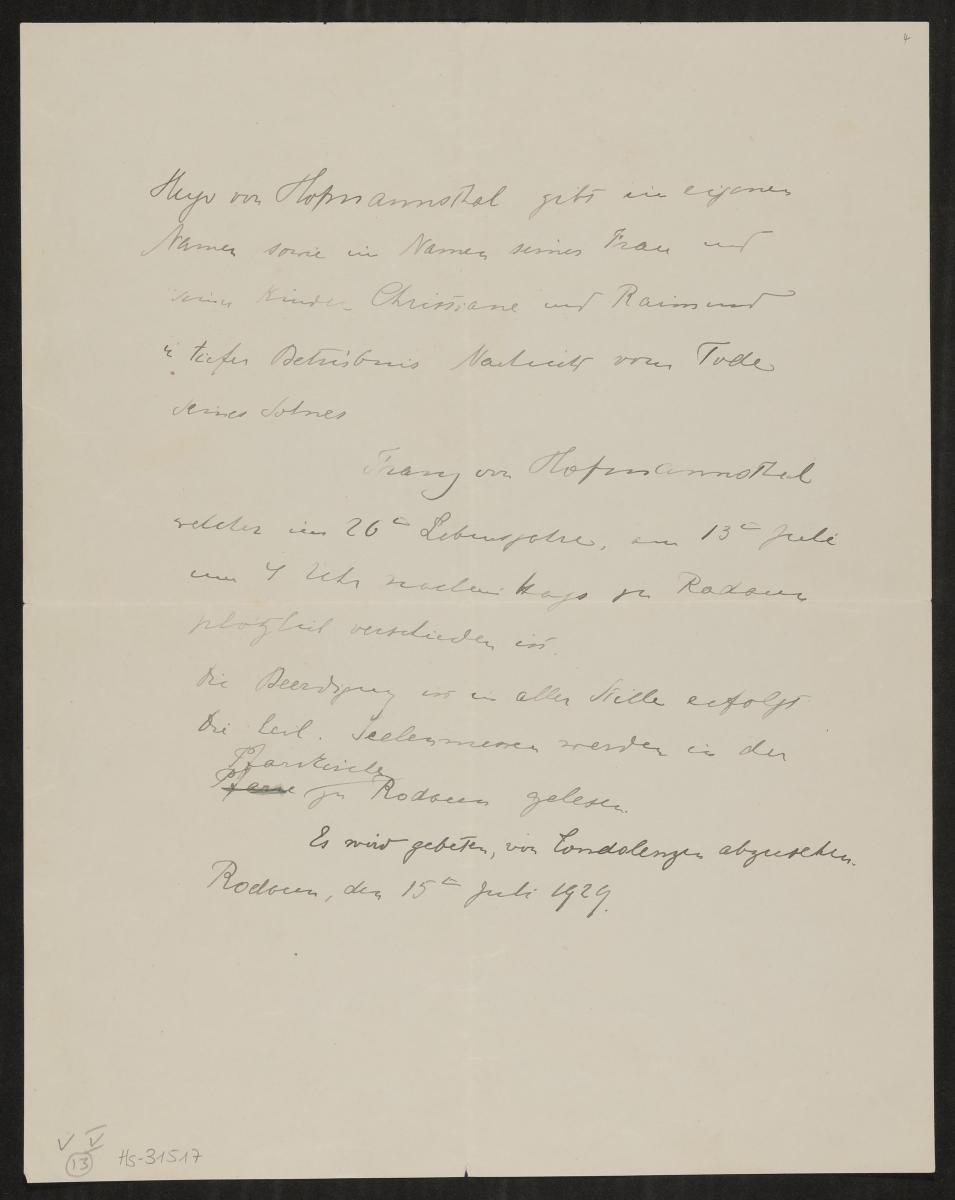 4
Hugo von Hofmannsthal gibt im eigenen
Namen sowie im Namen seiner Frau und
seiner Kinder Christiane und Raimund
in tiefer Betrübnis Nachricht vom Tode
seines Sohnes
Franz von Hofmannsthal
welcher im 26ten Lebensjahre, am 13ten Juli
um 4 Uhr nachmittags zu Rodaun
plötzlich verschieden ist.
Die Beerdigung ist in aller Stille erfolgt
Die heil. Seelenmessen werden in der
Pfarrkirche
Pfarre zu Rodaun gelesen.
Es wird gebeten, von Condolenzen abzusehen.
Rodaun, den 15ten Juli 1929.
V V
13 Hs-31517